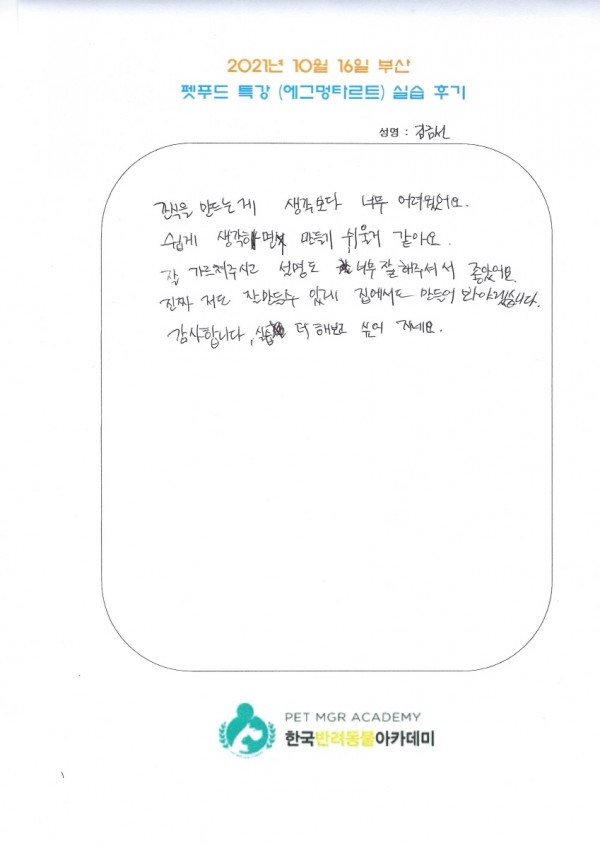 2021년 10월 16일 부산
펫푸드 특강 (에그멍타르트) 실습 후기
성명 : 김금선
간식을 만드는게 생각보다 너무 어려웠어요.
쉽게 생각하면 만들기 쉬울거 같아요.
잘 가르쳐주시고 설명도 너무 잘 해주셔서 좋았어요.
진짜 저도 잘만들수 있게 집에서도 만들어 봐야겠습니다.
감사합니다, 실습 더 해보고 싶어 지네요.
PET MGR ACADEMY
한국반려동물아카데미